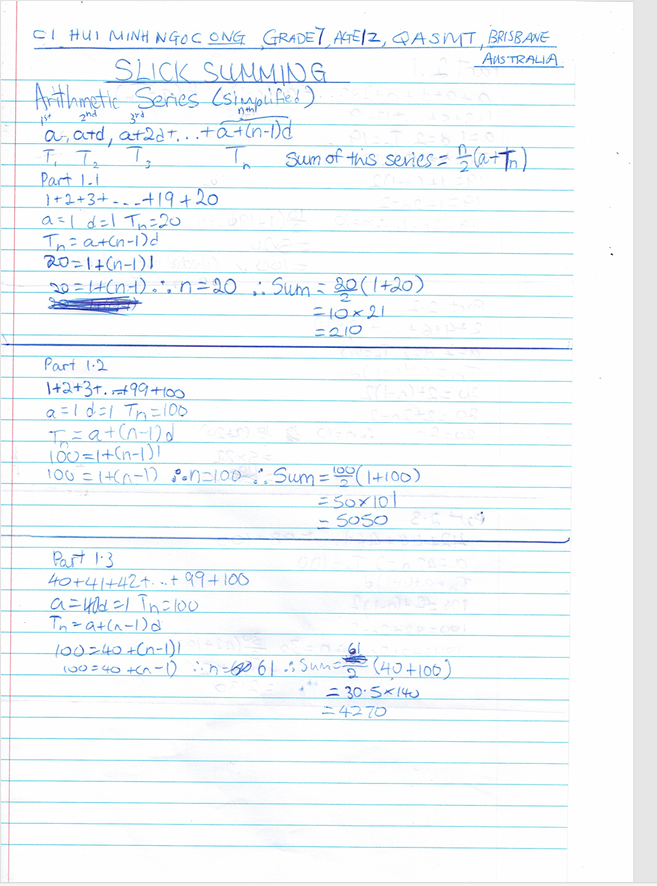 CI HUI MINH NGOC ONG, GRADE 7, AGE 12, QASMT, BRISBANE
AUSTRALIA
SLICK SUMMING
Arithmetic Series (simplified)
1st 2nd 3rd nth
a, a+d, a+2d+...+a+(n-1)d
T₁ T₂ T₃ Tₙ Sum of this series = n/2(a+Tₙ)
Part 1.1
1+2+3+...+19+20
a=1 d=1 Tₙ=20
Tₙ=a+(n-1)d
20=1+(n-1)1
20=1+(n-1) ∴ n=20 ∴ Sum = 20/2(1+20)
=10×21
=210
Part 1.2
1+2+3+...+99+100
a=1 d=1 Tₙ=100
Tₙ=a+(n-1)d
100=1+(n-1)1
100=1+(n-1) ∴ n=100 ∴ Sum=100/2(1+100)
=50×101
=5050
Part 1.3
40+41+42+...+99+100
a=40 d=1 Tₙ=100
Tₙ=a+(n-1)d
100=40+(n-1)1
100=40+(n-1) ∴ n=61 ∴ Sum=61/2(40+100)
=30.5×140
=4270